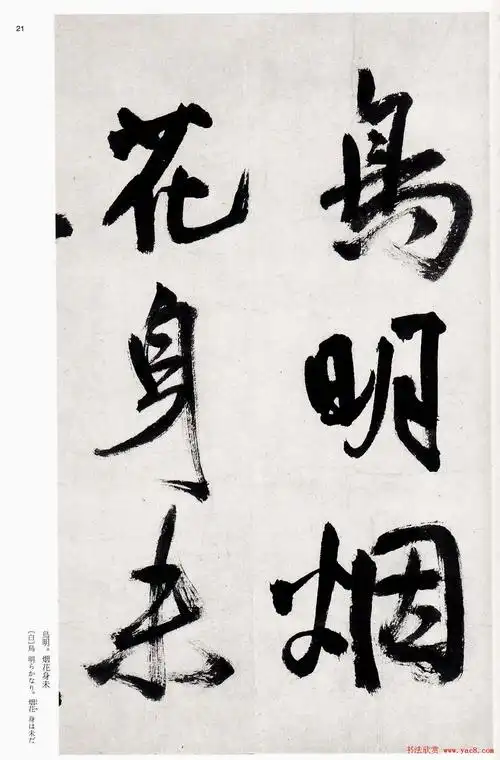 21
鳥明烟
花身未
鳥明。烟花身未
［白］鳥 明らかなり。烟花 身は未だ
书法欣赏 www.yac8.com